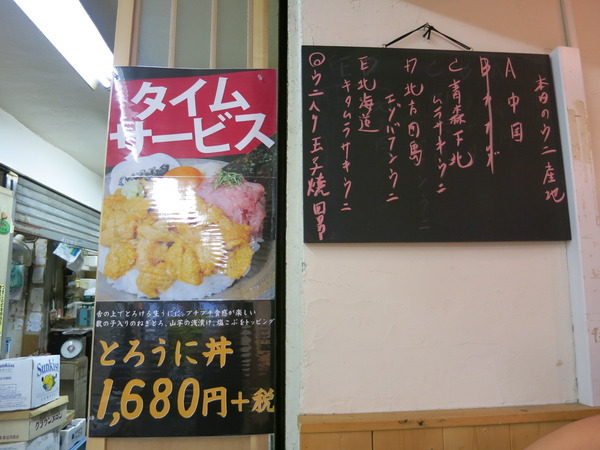 タイム
サービス
舌の上でとろける生うに、プチプチ食感が楽しい
数の子入りのねぎとろ、山芋の浅漬け、塩こぶをトッピング
とろうに丼
1,680円+税
本日のウニ産地
A 中国
B カナダ
C 青森下北
ムラサキウニ
D 北方四島
エゾバフンウニ
E 北海道
キタムラサキウニ
◎ウニ入り玉子焼
Sunkist